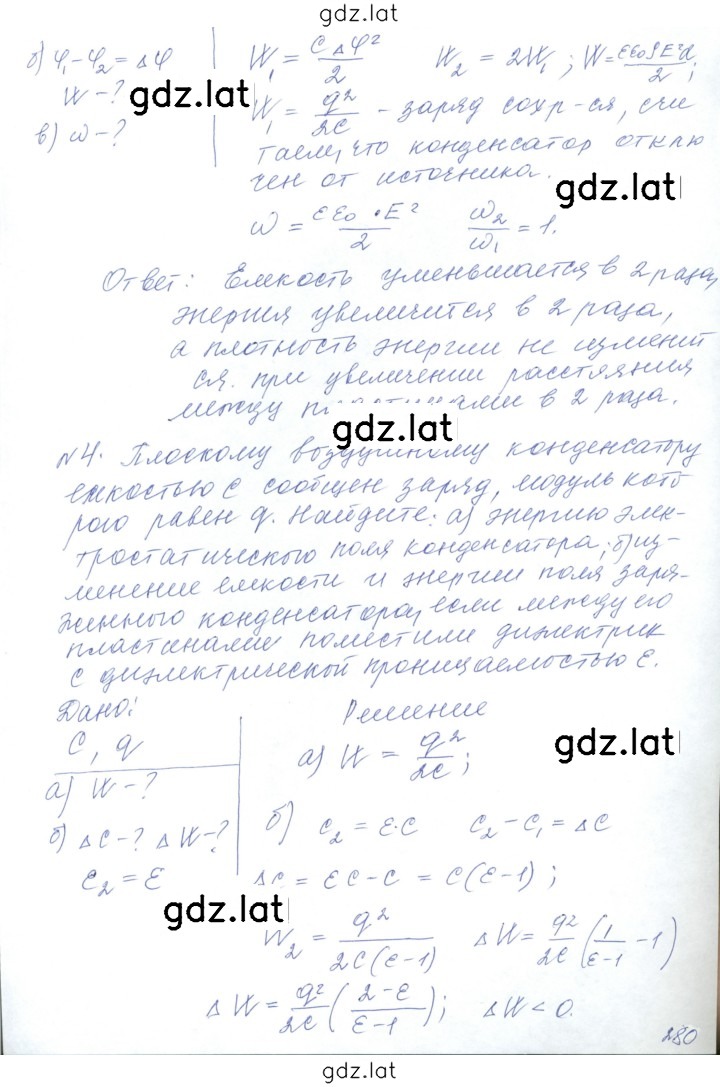 gdz.lat
б) φ₁-φ₂=Δφ
W-?
в) ω-?
W₁ = CΔφ²/2   W₂ = 2W₁ ; W = εε₀SE²d/2 ;
gdz.lat
W₁ = q²/2C - заряд сохр-ся, счи
таем, что конденсатор отклю
чен от источника.
gdz.lat
ω = εε₀·E²/2   ω₂/ω₁ = 1.
Ответ: Емкость уменьшается в 2 раза,
энергия увеличится в 2 раза,
а плотность энергии не изменит
ся при увеличении расстояния
между пластинами в 2 раза.
gdz.lat
№4. Плоскому воздушному конденсатору
емкостью С сообщен заряд, модуль кото
рого равен q. Найдите: а) энергию элек-
тростатического поля конденсатора; б) из-
менение емкости и энергии поля заря-
женного конденсатора, если между его
пластинами поместили диэлектрик
с диэлектрической проницаемостью ε.
Дано:   Решение
C, q
а) W = q²/2C ;
gdz.lat
а) W-?
б) ΔC-? ΔW-?
б) C₂ = ε·C   C₂-C₁ = ΔC
ε₂ = ε
ΔC = εC-C = C(ε-1) ;
gdz.lat
W₂ = q²/2C(ε-1)   ΔW = q²/2C (1/ε-1 - 1)
ΔW = q²/2C (2-ε/ε-1) ;   ΔW < 0.
280
gdz.lat